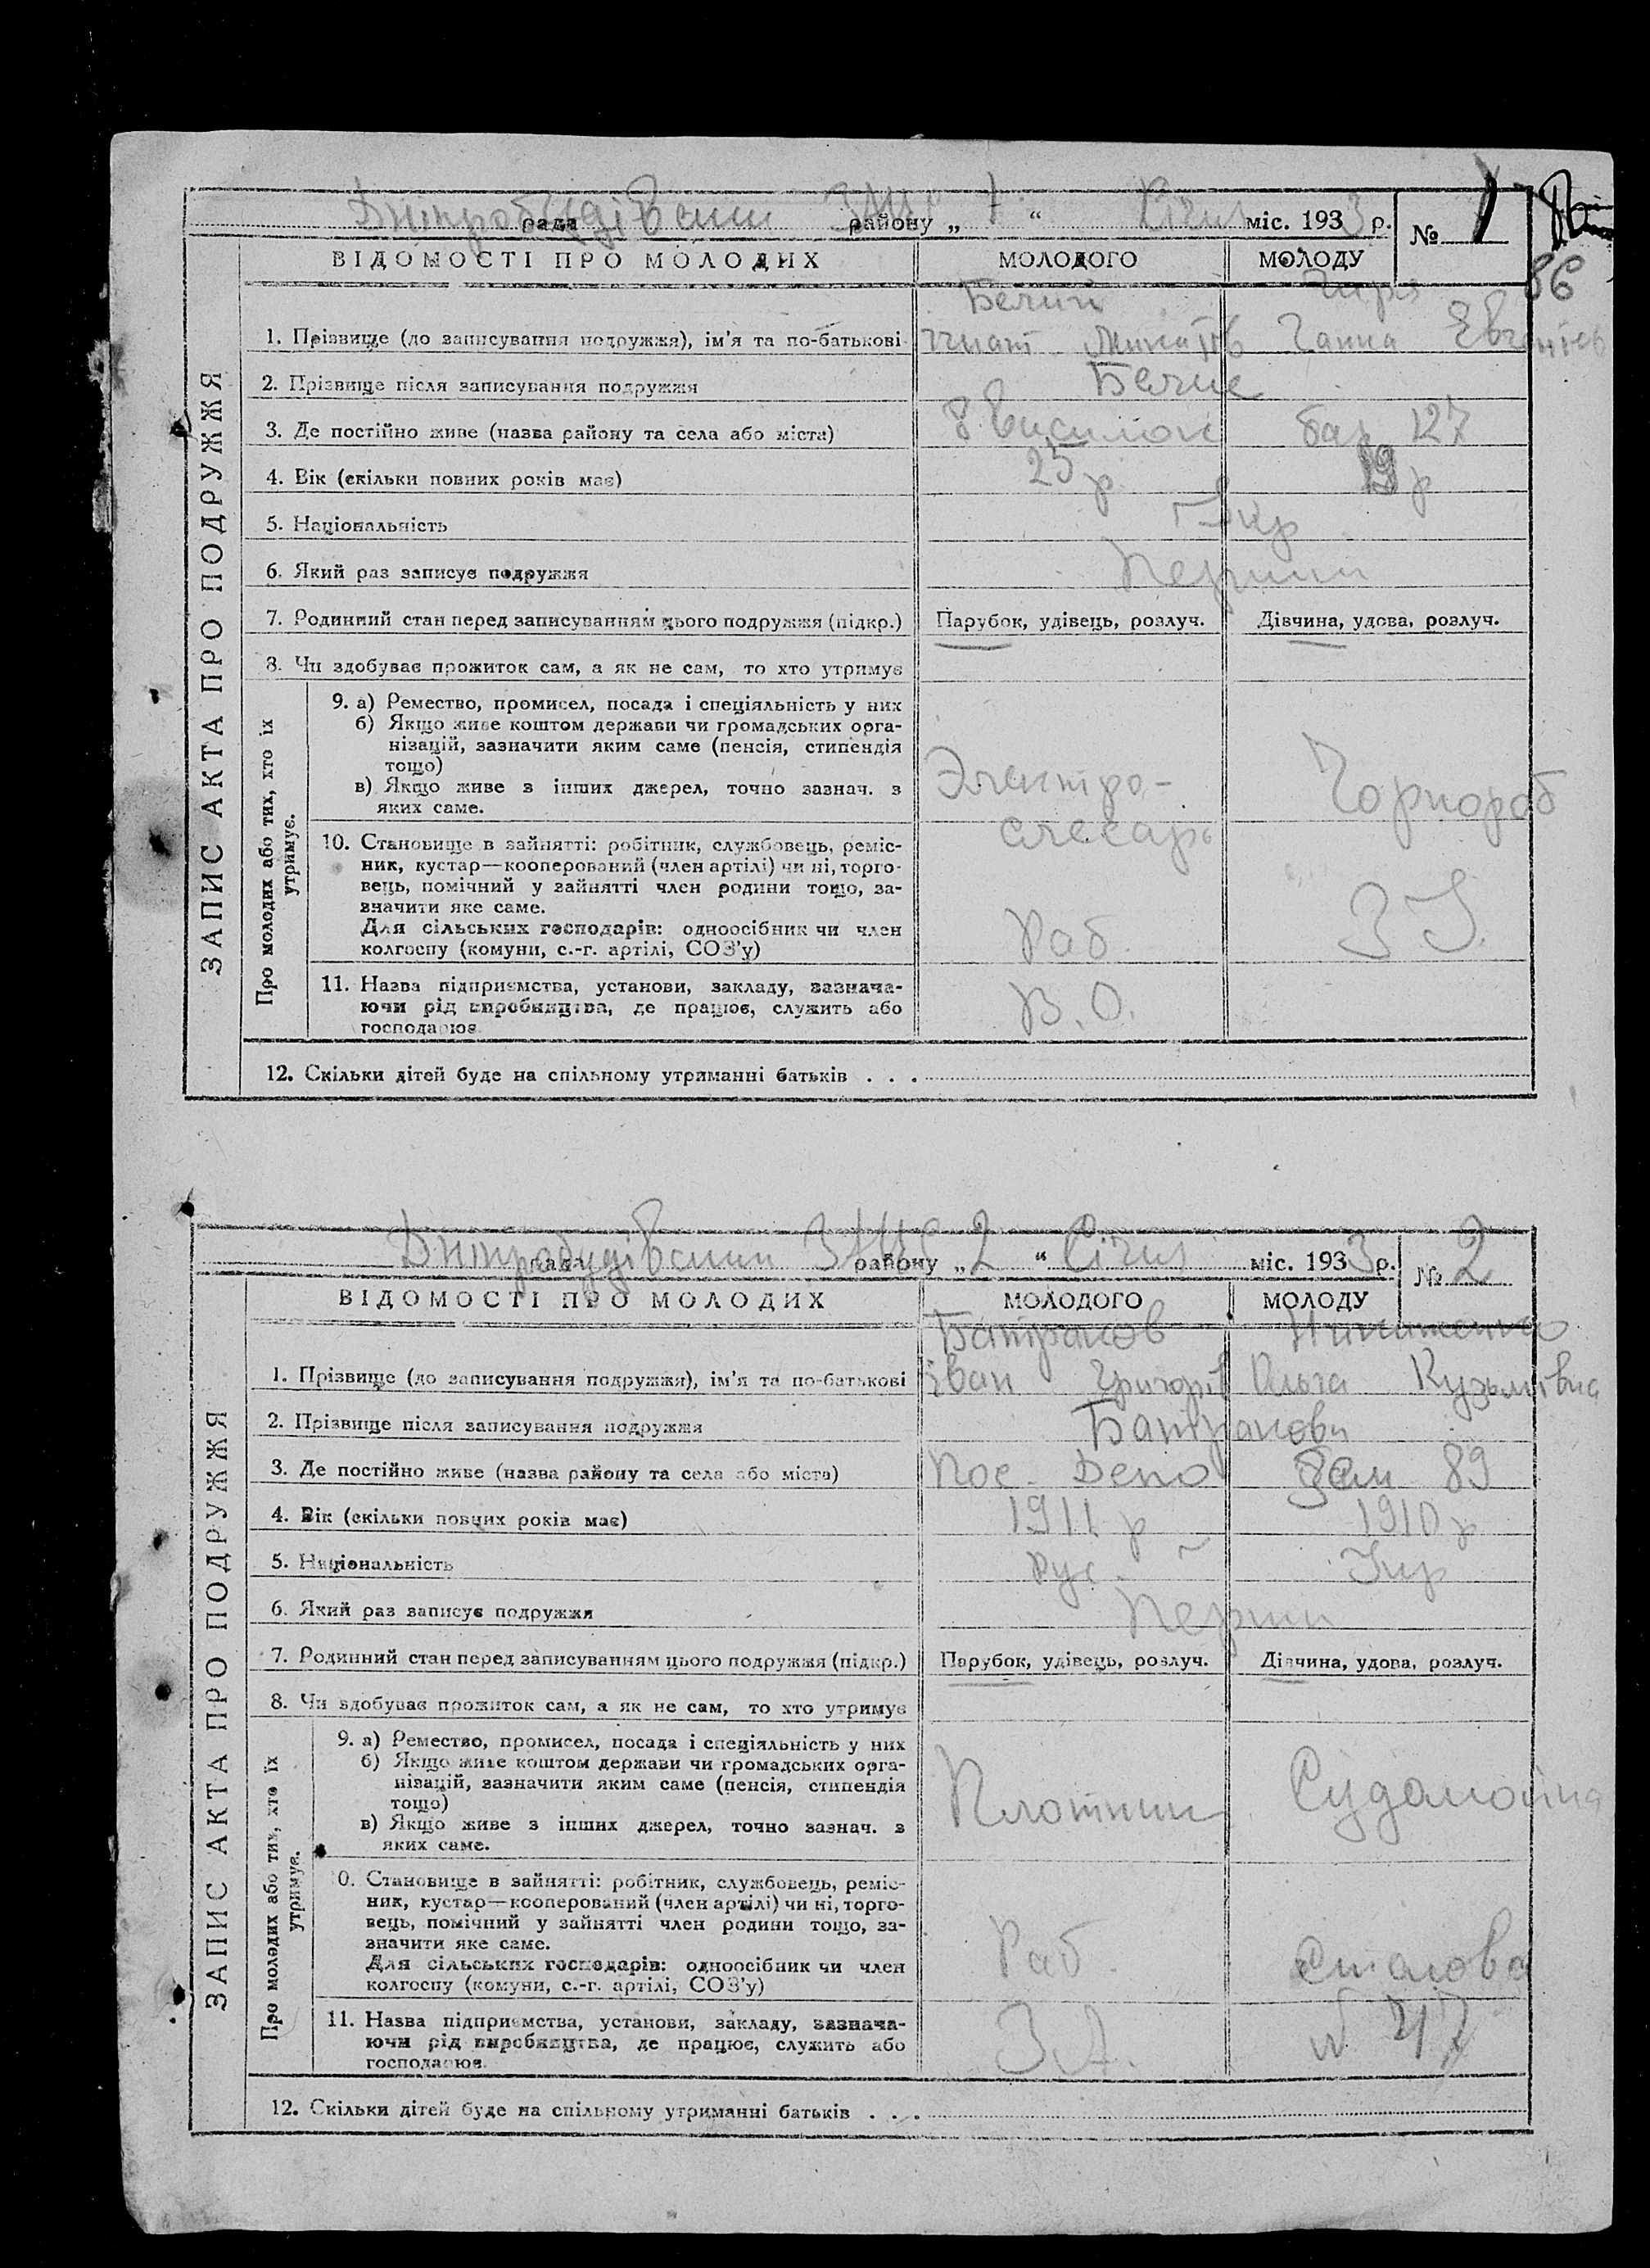 Дніпробудівський ЗАГС
рада району „ “ Січня міс. 1933 р. № 1
86
ВІДОМОСТІ ПРО МОЛОДИХ МОЛОДОГО МОЛОДУ
ЗАПИС АКТА ПРО ПОДРУЖЖЯ
1. Прізвище (до записування подружжя), ім'я та по-батькові Ганна
2. Прізвище після записування подружжя
3. Де постійно живе (назва району та села або міста) бар 127
4. Вік (скільки повних років має) 25 р 19 р
5. Національність Укр
6. Який раз записує подружжя Перший
7. Родинний стан перед записуванням цього подружжя (підкр.) Парубок, удівець, розлуч. Дівчина, удова, розлуч.
8. Чи здобуває прожиток сам, а як не сам, то хто утримує
Про молодих або тих, хто їх
утримує.
9. а) Ремество, промисел, посада і спеціяльність у них
б) Якщо живе коштом держави чи громадських орга-
нізацій, зазначити яким саме (пенсія, стипендія
тощо)
в) Якщо живе з інших джерел, точно зазнач. з
яких саме.
Электро-
слесарь
Чорнороб
10. Становище в зайнятті: робітник, службовець, реміс-
ник, кустар—кооперований (член артілі) чи ні, торго-
вець, помічний у зайнятті член родини тощо, за-
значити яке саме.
Для сільських господарів: одноосібник чи член
колгоспу (комуни, с.-г. артілі, СОЗ'у)
Раб.
11. Назва підприємства, установи, закладу, зазнача-
ючи рід виробництва, де працює, служить або
господарює
В.О.
12. Скільки дітей буде на спільному утриманні батьків . . .
Дніпробудівський ЗАГС
рада району „ 2 “ Січня міс. 1933 р. № 2
ВІДОМОСТІ ПРО МОЛОДИХ МОЛОДОГО МОЛОДУ
ЗАПИС АКТА ПРО ПОДРУЖЖЯ
Батраков
1. Прізвище (до записування подружжя), ім'я та по-батькові Іван Григорів Ольга Кузьмівна
2. Прізвище після записування подружжя Батракови
3. Де постійно живе (назва району та села або міста) Пос. Депо 89
4. Вік (скільки повних років має) 1911 р 1910 р
5. Національність Рус. Укр
6. Який раз записує подружжя Перший
7. Родинний стан перед записуванням цього подружжя (підкр.) Парубок, удівець, розлуч. Дівчина, удова, розлуч.
8. Чи здобуває прожиток сам, а як не сам, то хто утримує
Про молодих або тих, хто їх
утримує.
9. а) Ремество, промисел, посада і спеціяльність у них
б) Якщо живе коштом держави чи громадських орга-
нізацій, зазначити яким саме (пенсія, стипендія
тощо)
в) Якщо живе з інших джерел, точно зазнач. з
яких саме.
Плотник
Судамойка
10. Становище в зайнятті: робітник, службовець, реміс-
ник, кустар—кооперований (член артілі) чи ні, торго-
вець, помічний у зайнятті член родини тощо, за-
значити яке саме.
Для сільських господарів: одноосібник чи член
колгоспу (комуни, с.-г. артілі, СОЗ'у)
Раб.
Столова
11. Назва підприємства, установи, закладу, зазнача-
ючи рід виробництва, де працює, служить або
господарює
12. Скільки дітей буде на спільному утриманні батьків . . .